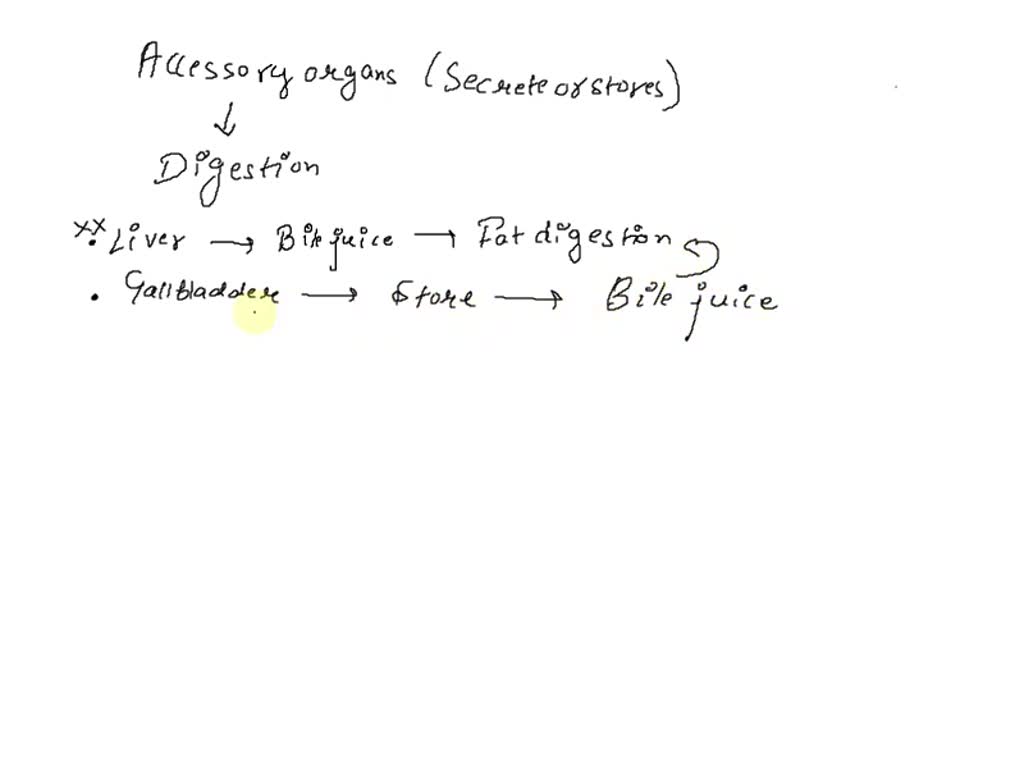 Accessory organs (Secrete or stores)
↓
Digestion
xx Liver → Bile juice → Fat digestion
• Gallbladder → Store → Bile juice